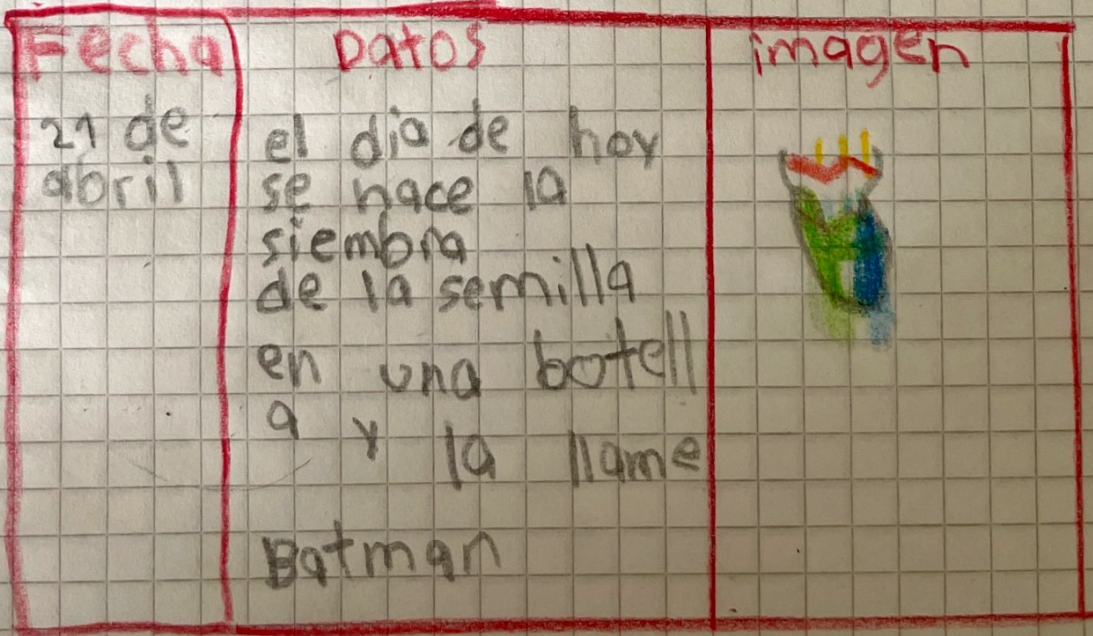 Fecha
Datos
imagen
21 de
abril
el dia de hoy
se hace la
siembra
de la semilla
en una botell
a y la llame
Batman